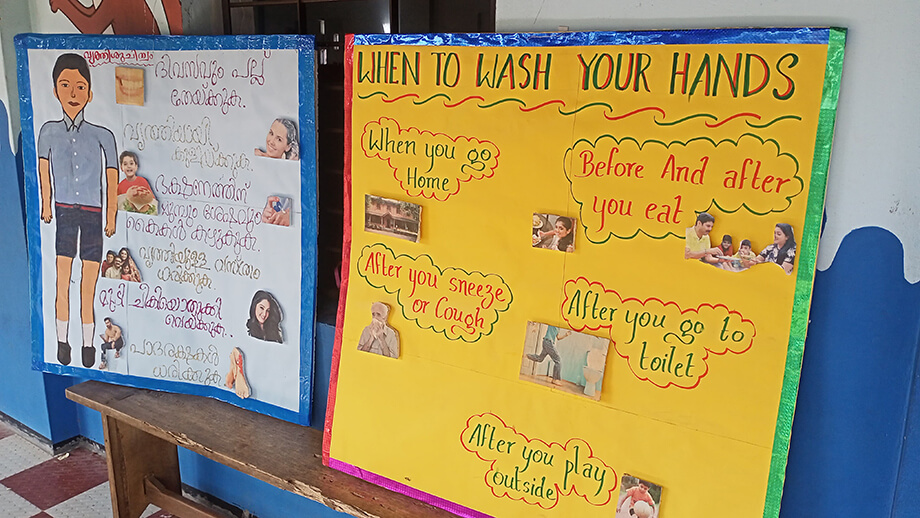 വൃത്തിശുചിത്വം
ദിവസവും പല്ല്
തേയ്ക്കുക.
വൃത്തിയായി
കുളിക്കുക.
ഭക്ഷണത്തിന്
മുമ്പും ശേഷവും
കൈകൾ കഴുകുക.
വൃത്തിയുള്ള വസ്ത്രം
ധരിക്കുക.
മുടി ചീകിയൊതുക്കി
വെയ്ക്കുക.
പാദരക്ഷകൾ
ധരിക്കുക
WHEN TO WASH YOUR HANDS
When you go
Home
Before And after
you eat
After you sneeze
or Cough
After you go to
toilet
After you play
outside